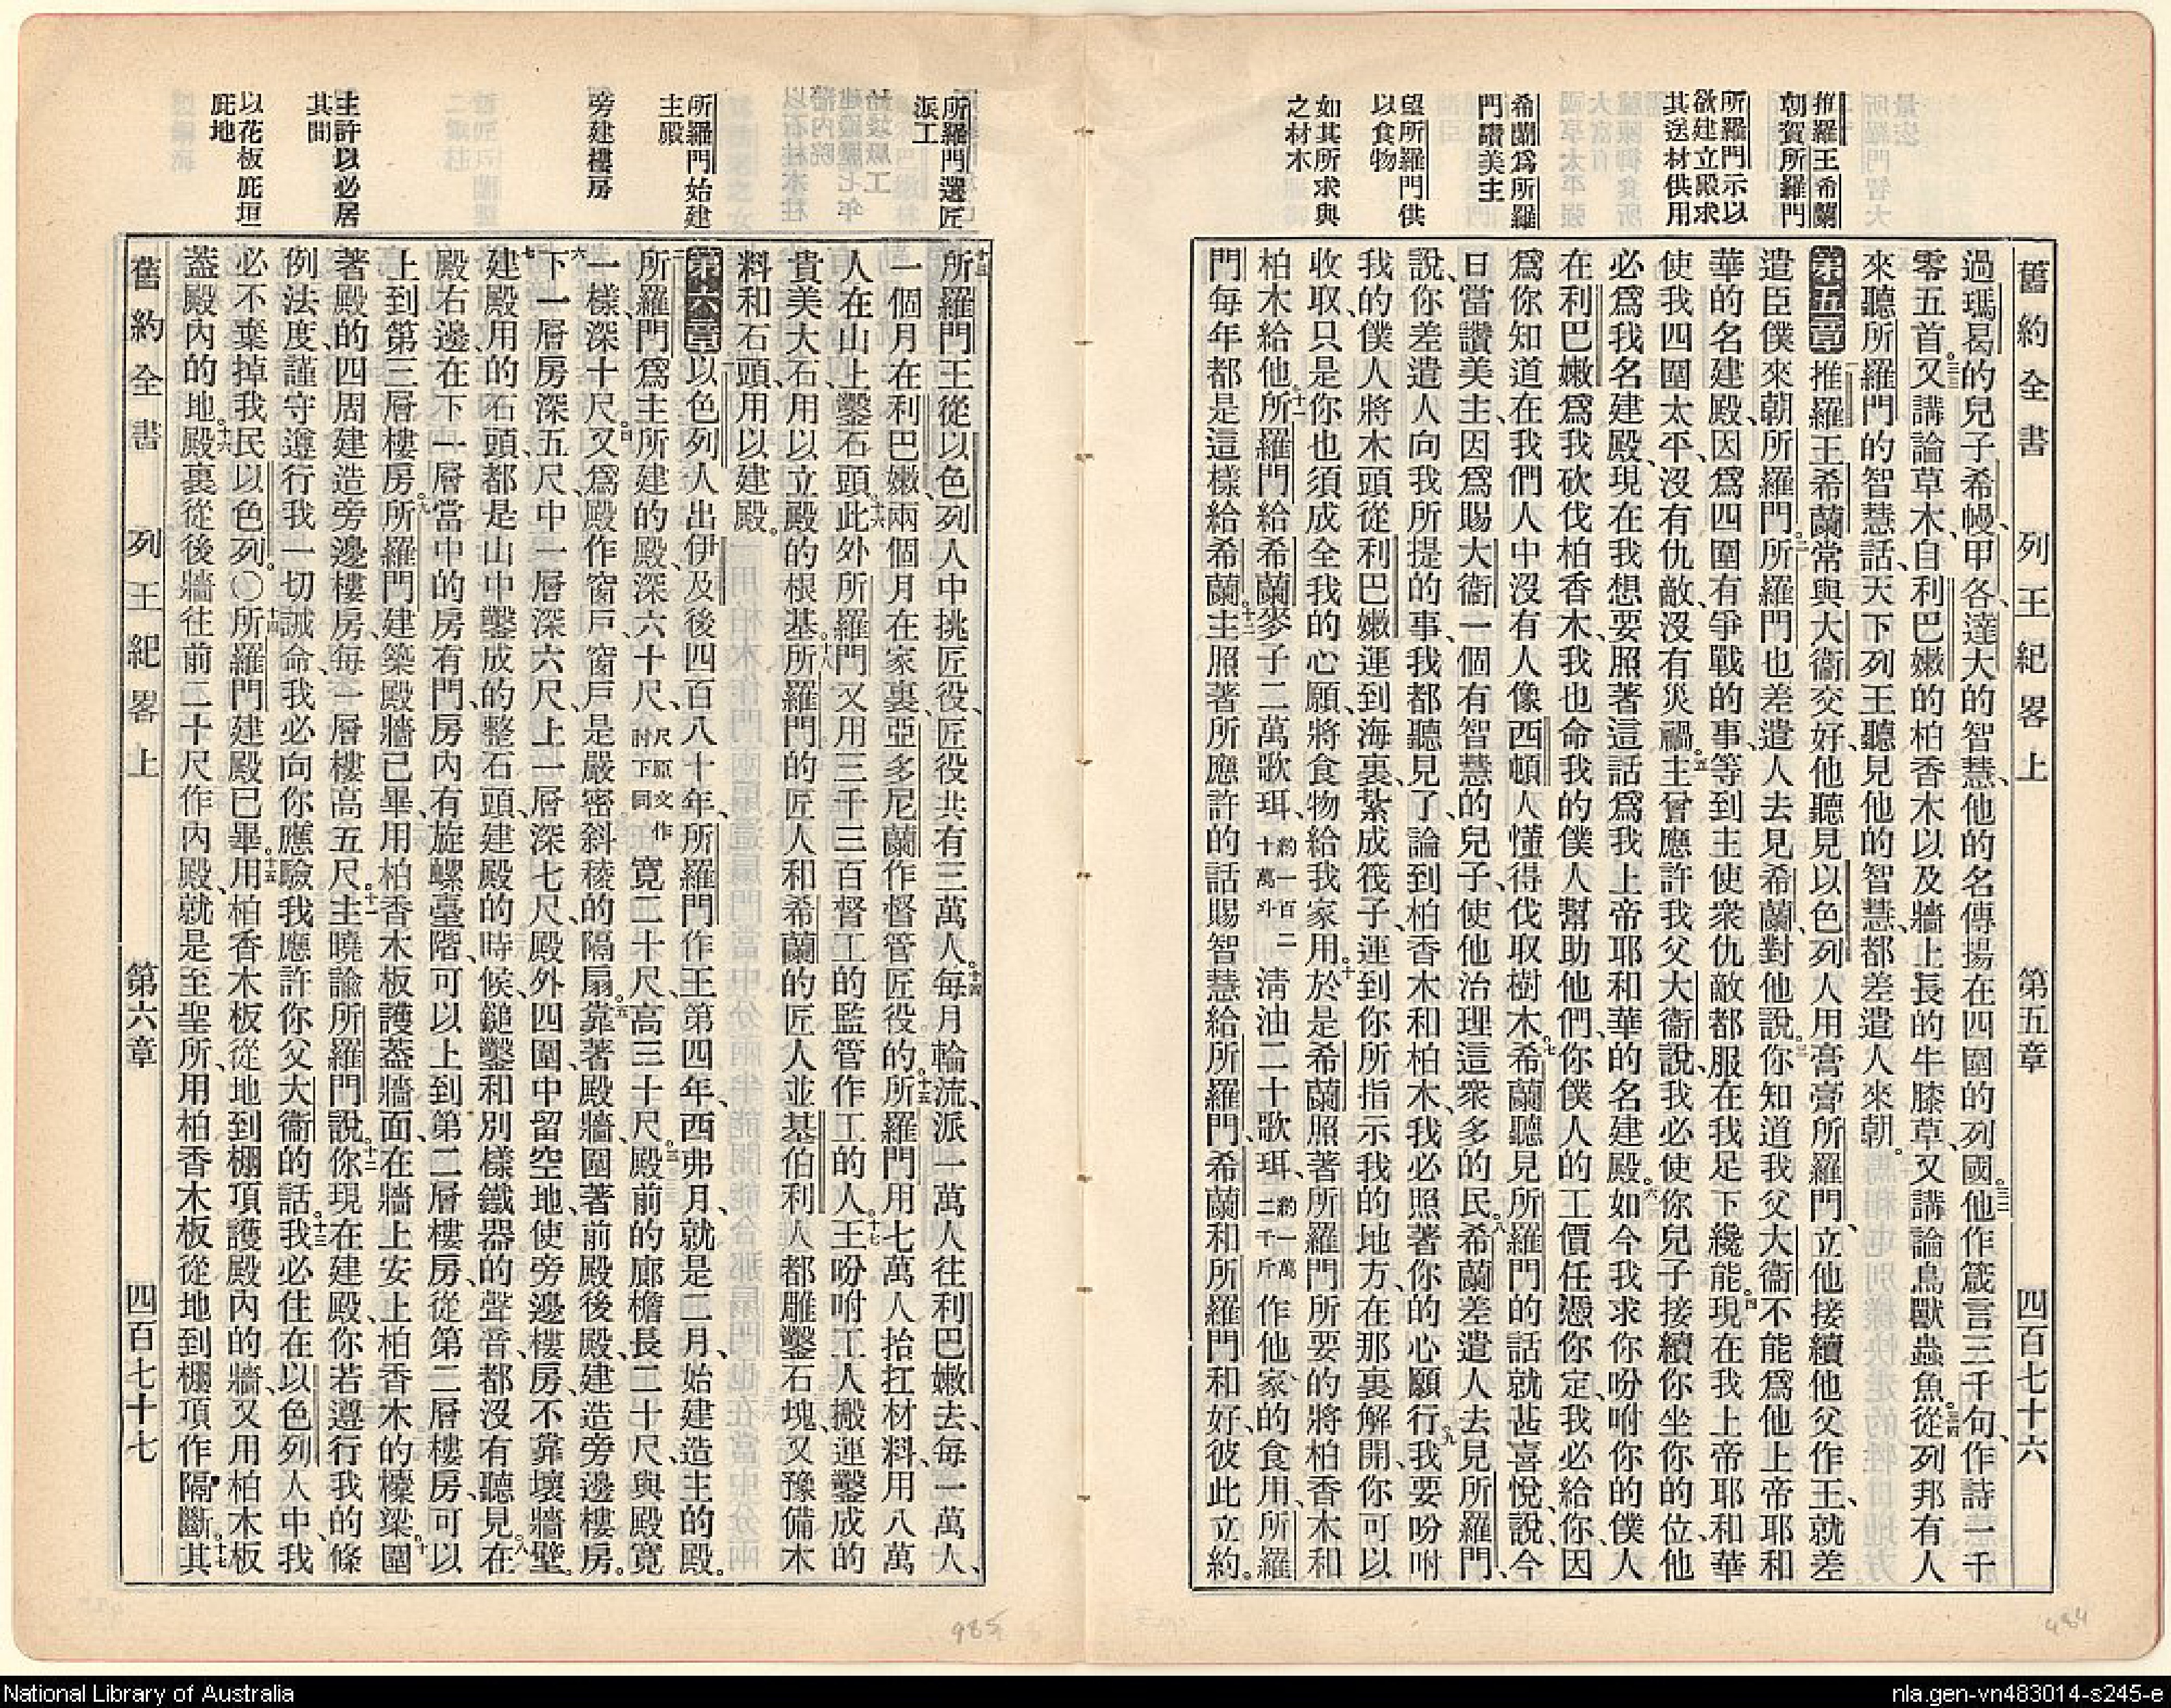 舊約全書 列王紀畧上 第五章 四百七十六
推羅王希蘭
朝賀所羅門
所羅門示以
欲建立殿求
其送材供用
希蘭爲所羅
門讚美主
望所羅門供
以食物
如其所求與
之材木
過瑪曷的兒子希幔、甲各、達大的智慧、他的名傳揚在四圍的列國。三二他作箴言三千句、作詩一千
零五首。三三又講論草木、自利巴嫩的柏香木以及牆上長的牛膝草、又講論鳥獸蟲魚。三四從列邦有人
來聽所羅門的智慧話、天下列王聽見他的智慧、都差遣人來朝。
第五章 一推羅王希蘭常與大衞交好、他聽見以色列人用膏膏所羅門、立他接續他父作王、就差
遣臣僕來朝所羅門。二所羅門也差遣人去見希蘭、對他說。三你知道我父大衞不能爲他上帝耶和
華的名建殿、因爲四圍有爭戰的事、等到主使衆仇敵都服在我足下纔能。四現在我上帝耶和華
使我四圍太平、沒有仇敵、沒有災禍。五主曾應許我父大衞說、我必使你兒子接續你坐你的位、他
必爲我名建殿、現在我想要照著這話爲我上帝耶和華的名建殿。六如今我求你吩咐你的僕人
在利巴嫩爲我砍伐柏香木、我也命我的僕人幫助他們、你僕人的工價任憑你定、我必給你、因
爲你知道在我們人中沒有人像西頓人懂得伐取樹木。七希蘭聽見所羅門的話就甚喜悅、說、今
日當讚美主、因爲賜大衞一個有智慧的兒子、使他治理這衆多的民。八希蘭差遣人去見所羅門、
說、你差遣人向我所提的事、我都聽見了、論到柏香木和柏木、我必照著你的心願行。九我要吩咐
我的僕人將木頭從利巴嫩運到海裏、紮成筏子、運到你所指示我的地方、在那裏解開、你可以
收取、只是你也須成全我的心願、將食物給我家用。十於是希蘭照著所羅門所要的、將柏香木和
柏木給他。十一所羅門給希蘭麥子二萬歌珥、約一百二十萬斗 淸油二十歌珥、約一萬二千斤 作他家的食用、所羅
門每年都是這樣給希蘭。十二主照著所應許的話賜智慧給所羅門、希蘭和所羅門和好、彼此立約。
所羅門選匠
派工
所羅門始建
主殿
旁建樓房
主許以必居
其間
以花板庇垣
庇地
十三所羅門王從以色列人中挑匠役、匠役共有三萬人。十四每月輪流、派一萬人往利巴嫩去、每一萬人、
一個月在利巴嫩、兩個月在家裏、亞多尼蘭作督管匠役的。十五所羅門用七萬人抬扛材料、用八萬
人在山上鑿石頭。十六此外所羅門又用三千三百督工的監管作工的人。十七王吩咐工人搬運鑿成的
貴美大石、用以立殿的根基。十八所羅門的匠人和希蘭的匠人並基伯利人都雕鑿石塊、又豫備木
料和石頭、用以建殿。
第六章 一以色列人出伊及後四百八十年、所羅門作王第四年、西弗月、就是二月、始建造主的殿。
二所羅門爲主所建的殿、深六十尺、尺原文作肘下同 寬二十尺、高三十尺。三殿前的廊檐長二十尺、與殿寬
一樣、深十尺。四又爲殿作窗戶、窗戶是嚴密斜稜的隔扇。五靠著殿牆、圍著前殿後殿、建造旁邊樓房。
六下一層房深五尺、中一層深六尺、上一層深七尺、殿外四圍中留空地、使旁邊樓房、不靠壞牆壁。
七建殿用的石頭、都是山中鑿成的整石頭、建殿的時候、鎚鑿和別樣鐵器的聲音、都沒有聽見。八在
殿右邊在下一層當中的房有門、房內有旋螺臺階、可以上到第二層樓房、從第二層樓房、可以
上到第三層樓房。九所羅門建築殿牆已畢、用柏香木板護葢牆面、在牆上安上柏香木的檁梁。十圍
著殿的四周建造旁邊樓房、每一層樓高五尺。十一主曉諭所羅門說。十二你現在建殿、你若遵行我的條
例法度、謹守遵行我一切誡命、我必向你應驗我應許你父大衞的話。十三我必住在以色列人中、我
必不棄掉我民以色列。〇十四所羅門建殿已畢。十五用柏香木板從地到棚頂護殿內的牆、又用柏木板
葢殿內的地。十六殿裏從後牆往前二十尺作內殿、就是至聖所、用柏香木板從地到棚頂作隔斷。十七其
舊約全書 列王紀畧上 第六章 四百七十七
985
484
National Library of Australia
nla.gen-vn483014-s245-e